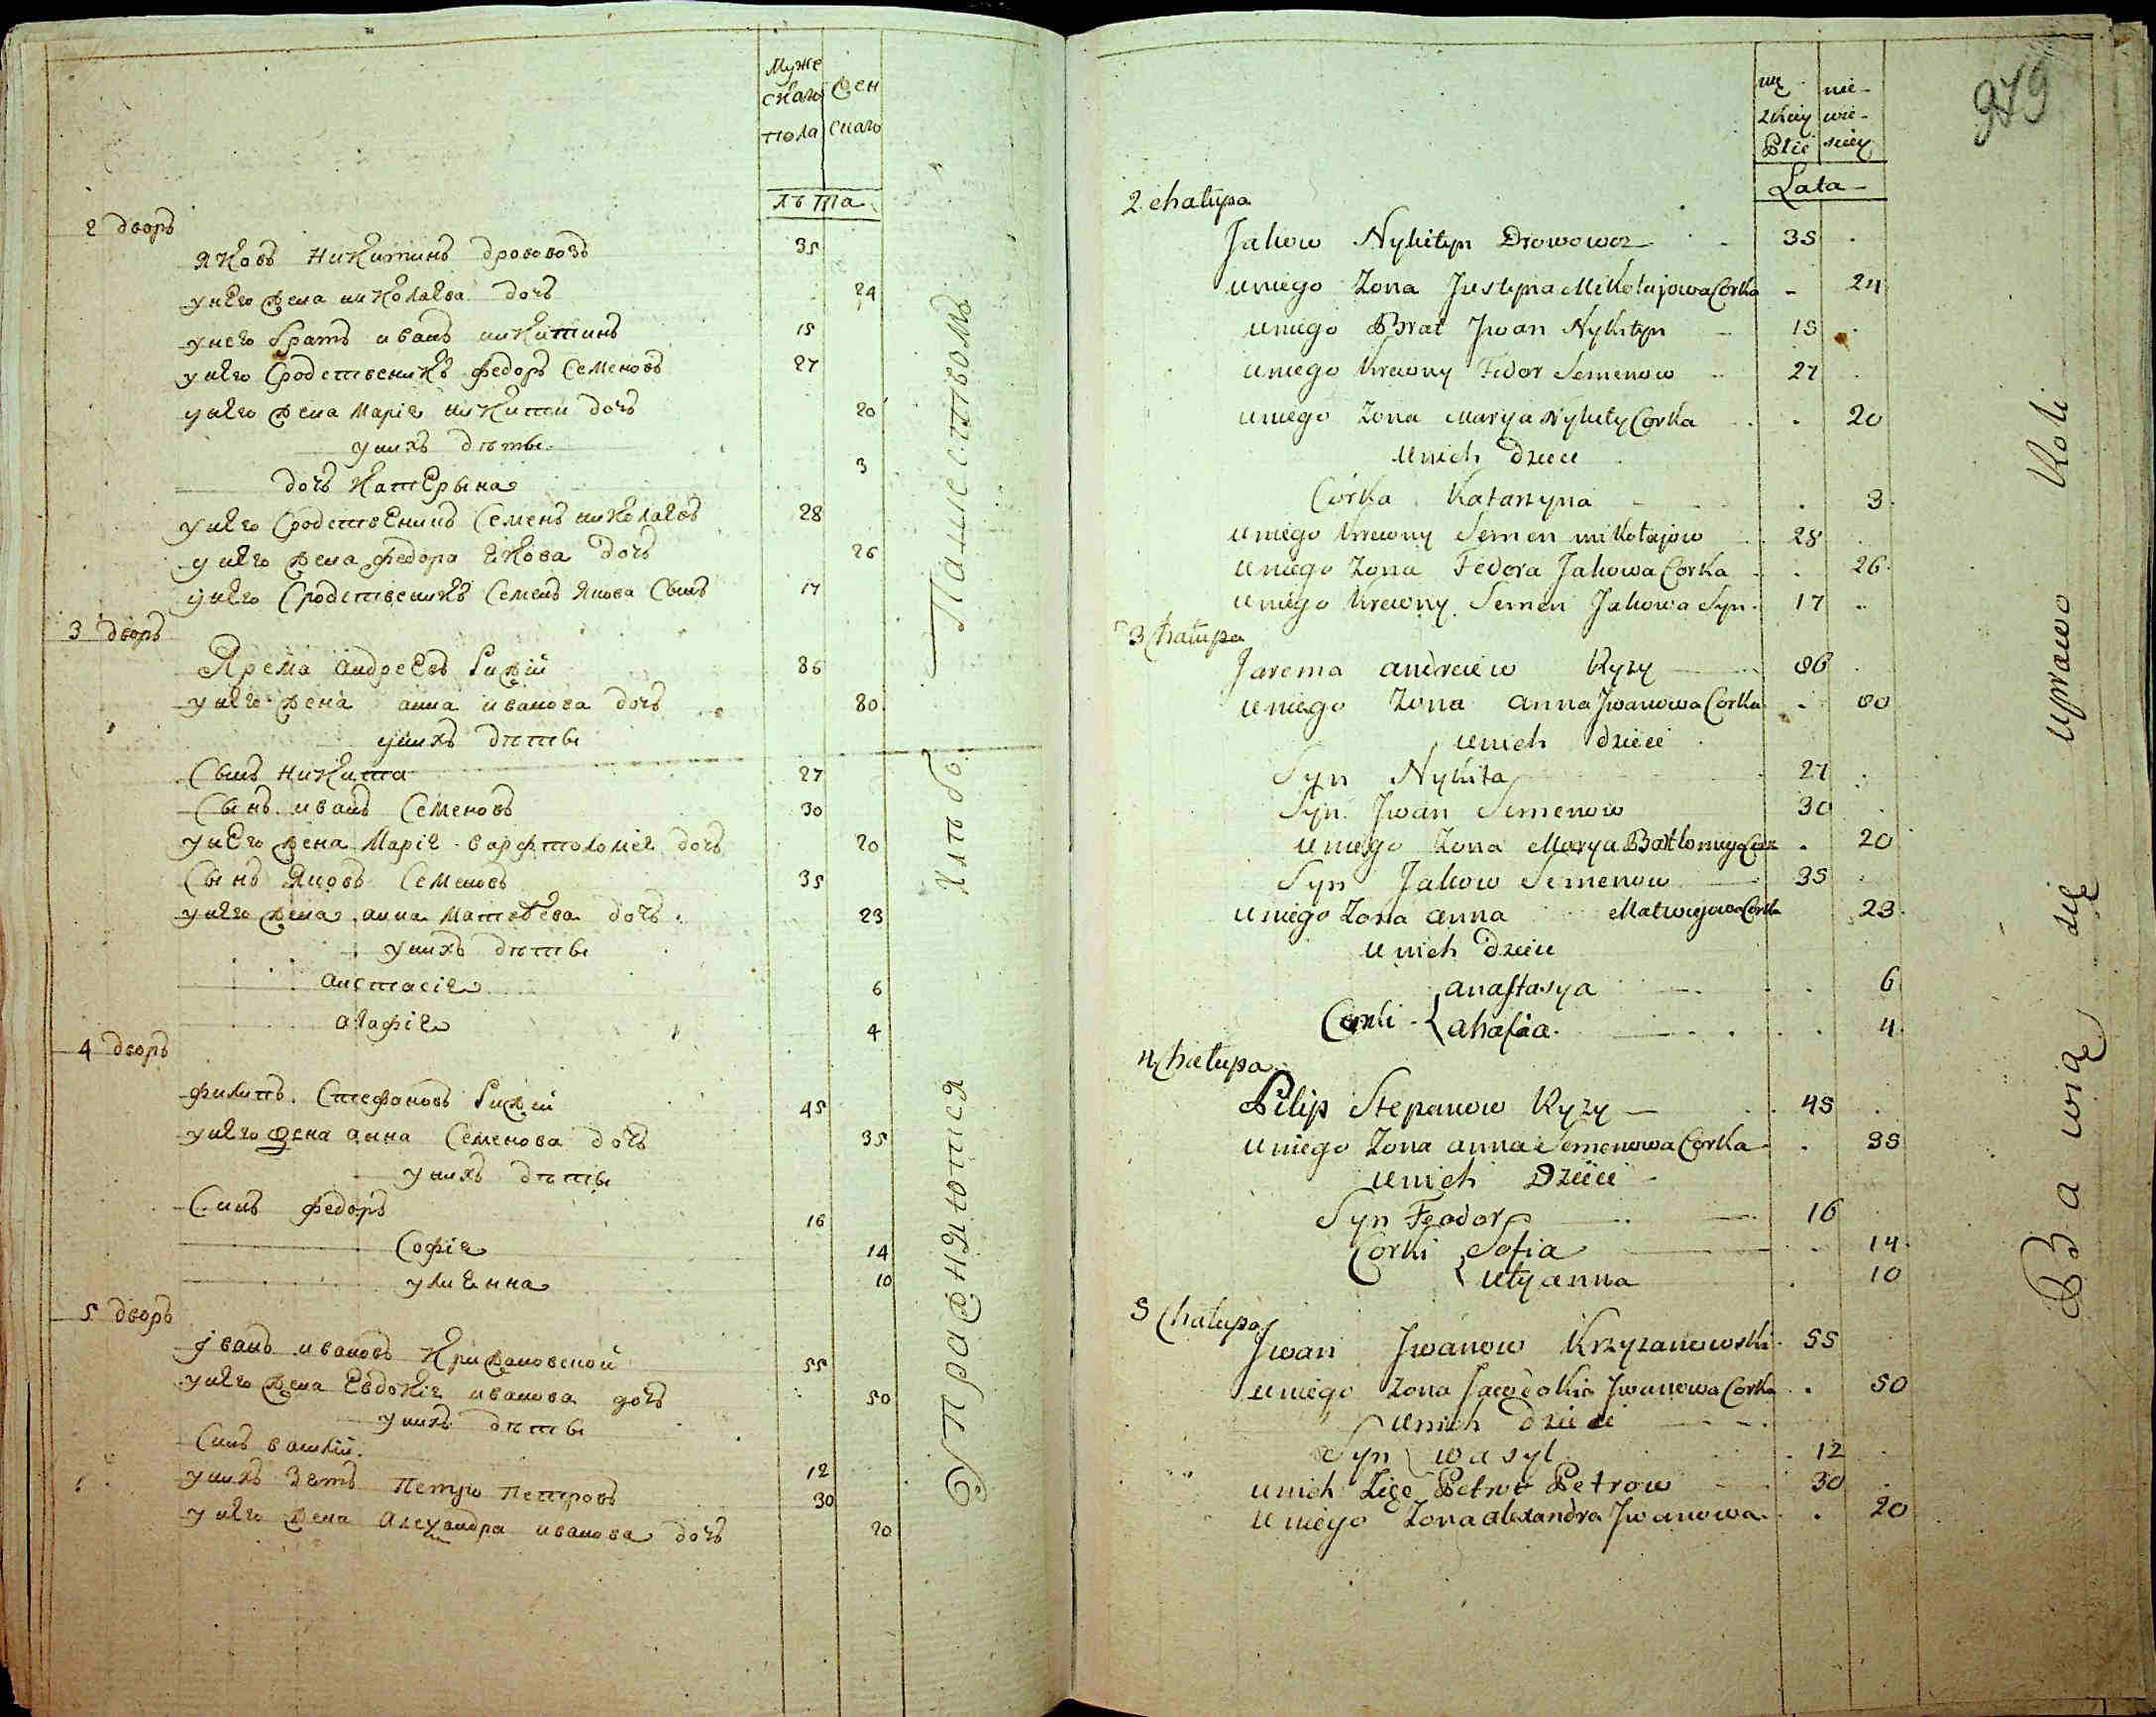 Муже
скаго
пола
Жен
скаго
лѣта
2 дворъ
Яковъ Никитинъ дрововозъ 35
у него жена николаева дочь 24
у него братъ иванъ никитинъ 15
у него сродственикъ федоръ Семеновъ 27
у него жена Маріе никити дочь 20
у нихъ дѣты
дочь Катерына 3
у него сродственикъ Семенъ николаевъ 28
у него жена федора якова дочь 26
у него Сродственикъ Семенъ якова Сынъ 17
3 дворъ
Ярема андреевъ Рижій 86
у него жена анна иванова дочь 80
у нихъ дѣты
Сынъ Никита 27
Сынъ иванъ Семеновъ 30
у него жена Маріе варфтоломіе дочь 20
Сынъ Яковъ Семеновъ 35
у него жена анна Матвѣева дочь 23
у нихъ дѣты
анстасіе 6
агафіе 4
4 дворъ
филипъ Стефановъ Рижій 45
у него жена анна Семенова дочь 35
у нихъ дѣты
Синъ федоръ 16
Софіе 14
улиенна 10
5 дворъ
Iванъ ивановъ Крижановской 55
у него жена Евдокіе иванова дочь 50
у нихъ дѣты
Синъ васклій 12
у нихъ Зеть Петро Петровъ 30
у него жена Алеѯандра иванова дочь 20
Упражняются Хлѣбо Пашествомъ
979
mę
zkiey
Płci
nie-
wie-
sciey
Lata
2 chałupa
Jakow Nykityn Drowowoz 35
u niego Zona Justyna Mikołajowa Corka 24
u niego Brat Jwan Nykityn 15
u niego krewny Fedor Semenow 27
u niego Zona Marya Nykity Corka 20
u nich Dzieci
Córka Katarzyna 3
u niego krewny Semen mikołajow 28
u niego Zona Fedora Jakowa Corka 26
u niego krewny Semen Jakowa Syn 17
3 Chałupa
Jarema andreiew Ryzy 86
u niego Zona anna Jwanowa Corka 80
u nich dzieci
Syn Nykita 27
Syn Jwan Semenow 30
u niego Zona Marya Bartłomeya Cor 20
Syn Jakow Semenow 35
u niego Zona anna Matwiejowa Corka 23
u nich Dzieci
Corki anastasya 6
ahafia 4
4 Chałupa
Pilip Stepanow Ryzy 45
u niego Zona anna Semenowa Corka 35
u nich Dzieci
Syn Feodor 16
Corki Sofia 14
Ulyanna 10
5 Chałupa
Jwan Jwanow Krzyzanowski 55
u niego Zona Jawdokia Jwanowa Corka 50
u nich dzieci
Syn wasyl 12
u nich Zięć Petro Petrow 30
u niego Zona alexandra Jwanowa 20
Bawią się uprawo Roli